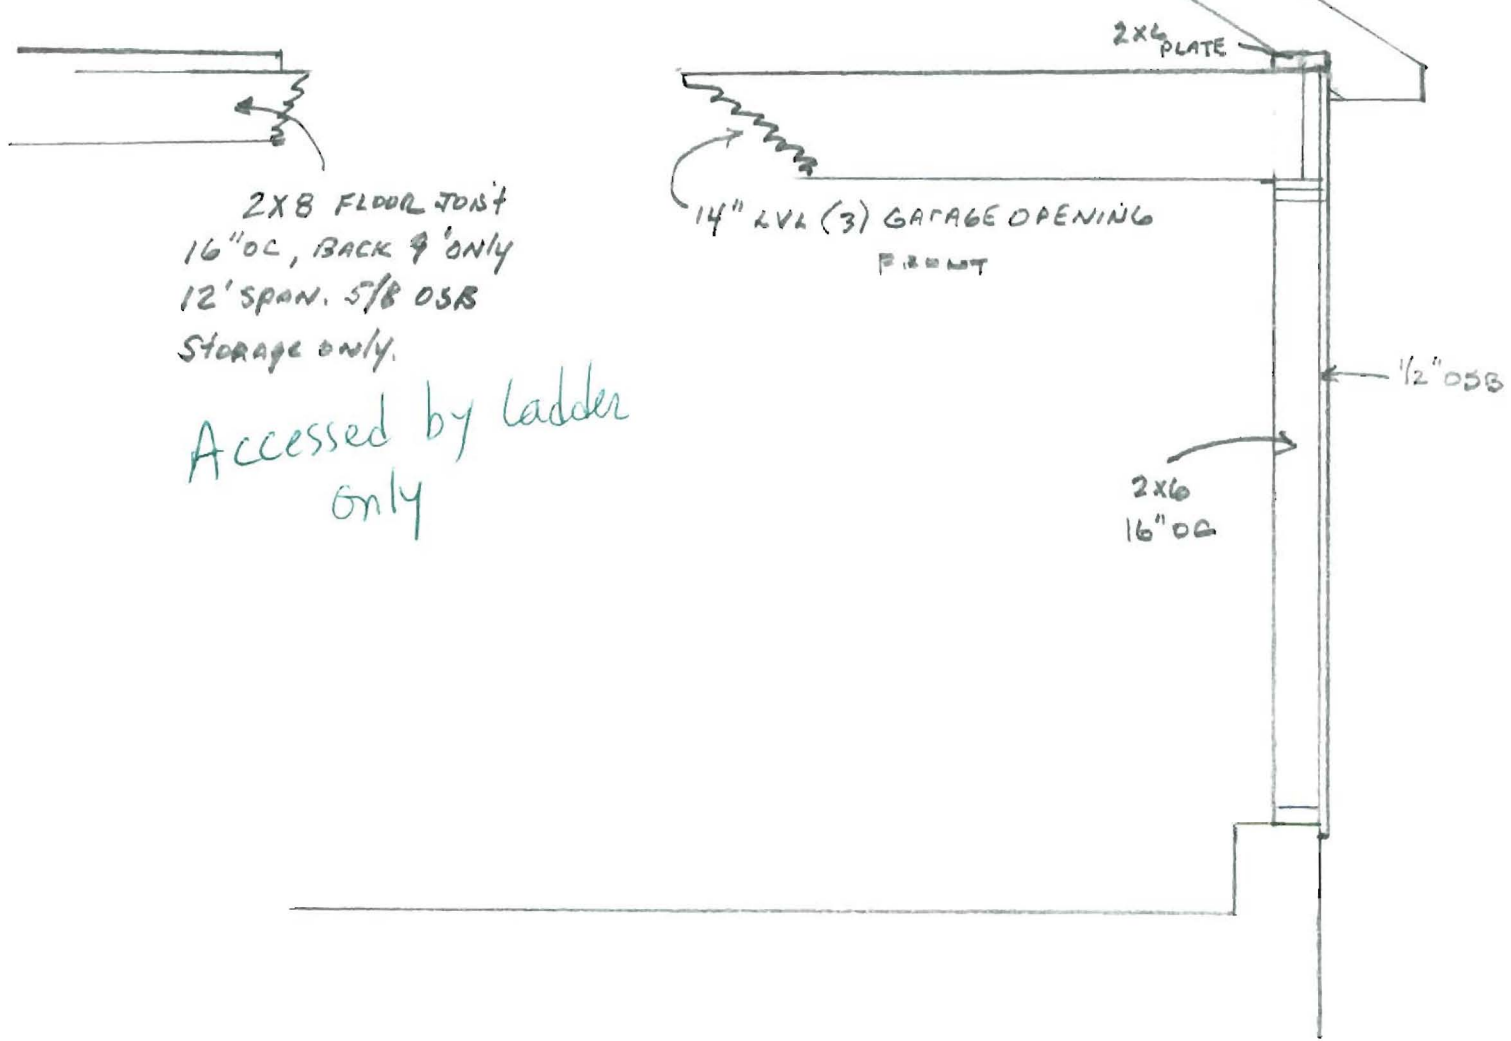 2X6
PLATE
2X8 FLOOR JOIST
16" OC, BACK 9' ONLY
12' SPAN. 5/8 OSB
Storage only.
Accessed by ladder
only
14" LVL (3) GARAGE OPENING
FRONT
1/2" OSB
2X6
16" OC